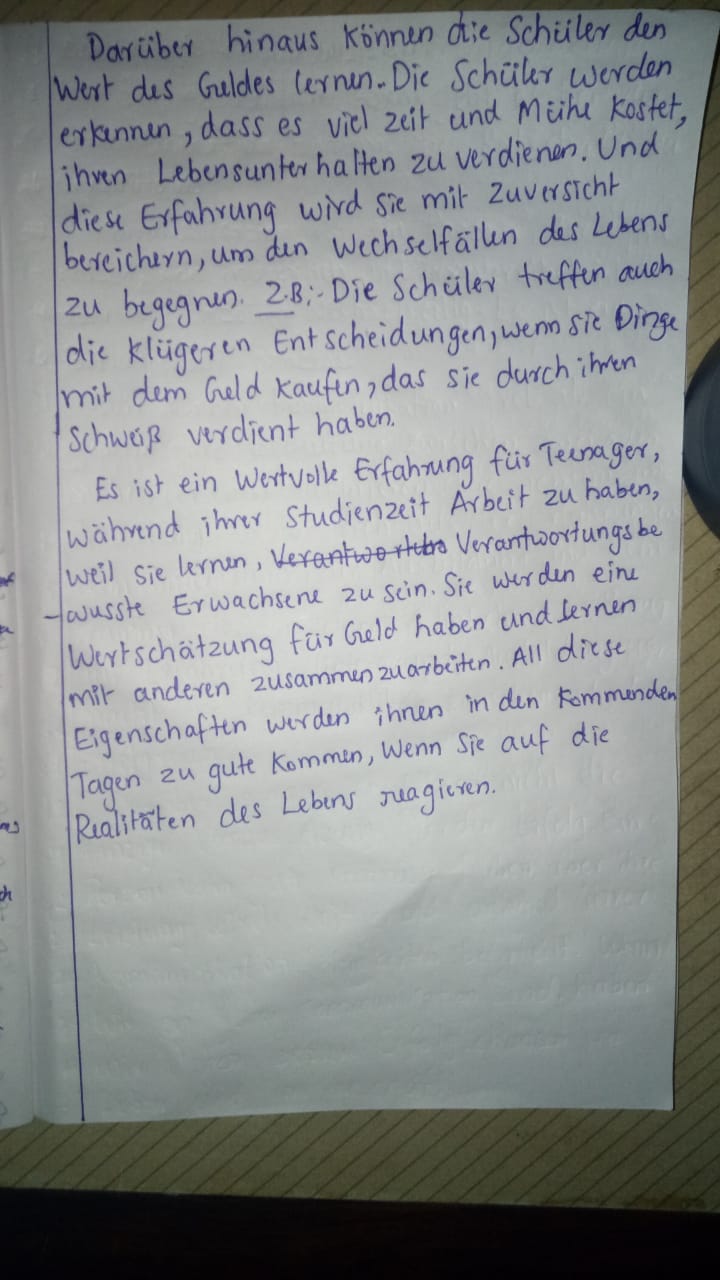 Darüber hinaus können die Schüler den
Wert des Geldes lernen. Die Schüler werden
erkennen, dass es viel zeit und Mühe kostet,
ihren Lebensunterhalten zu verdienen. Und
diese Erfahrung wird sie mit Zuversicht
bereichern, um den Wechselfällen des Lebens
zu begegnen. Z.B:- Die Schüler treffen auch
die klügeren Entscheidungen, wenn sie Dinge
mit dem Geld kaufen, das sie durch ihren
Schweiß verdient haben.
Es ist ein Wertvolle Erfahrung für Teenager,
während ihrer Studienzeit Arbeit zu haben,
weil sie lernen, Verantwortungsbe
-wusste Erwachsene zu sein. Sie werden eine
Wertschätzung für Geld haben und lernen
mit anderen zusammenzuarbeiten. All diese
Eigenschaften werden ihnen in den kommenden
Tagen zu gute kommen, wenn sie auf die
Realitäten des Lebens reagieren.